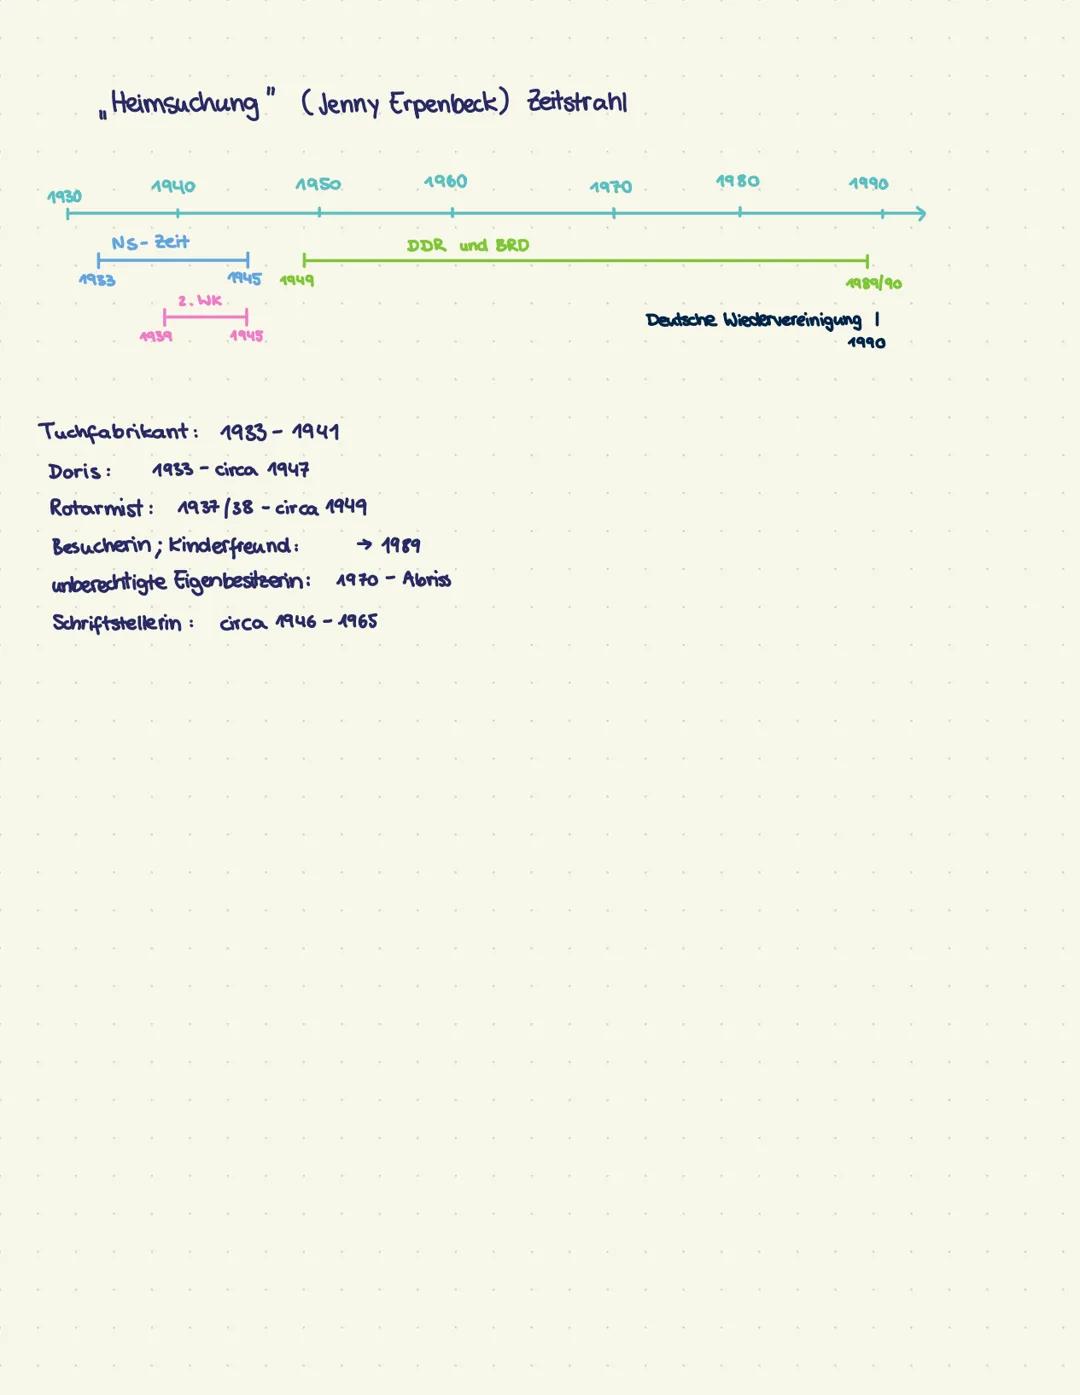 „Heimsuchung" (Jenny Erpenbeck) Zeitstrahl
1930 1940 1950 1960 1970 1980 1990
NS-Zeit DDR und BRD
1933 1945 1949 1989/90
2. WK
Deutsche Wiedervereinigung
1939 1945 1990
Tuchfabrikant: 1933 - 1941
Doris: 1933 - circa 1947
Rotarmist: 1937/38 - circa 1949
Besucherin; Kinderfreund: → 1989
unberechtigte Eigenbesitzerin: 1970 - Abriss
Schriftstellerin: circa 1946 - 1965